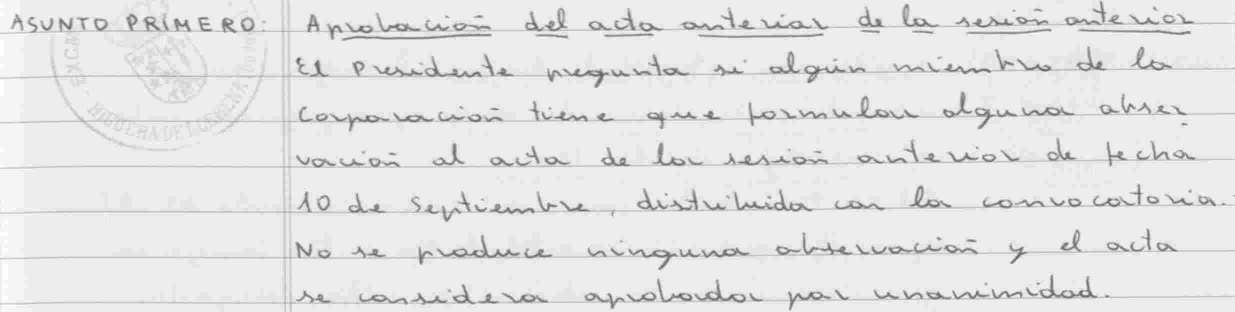 ASUNTO PRIMERO: Aprobación del acta anterior de la sesión anterior
El Presidente pregunta si algún miembro de la
Corporación tiene que formular alguna obser
vación al acta de la sesión anterior de fecha
10 de Septiembre, distribuida con la convocatoria.
No se produce ninguna observación y el acta
se considera aprobada por unanimidad.